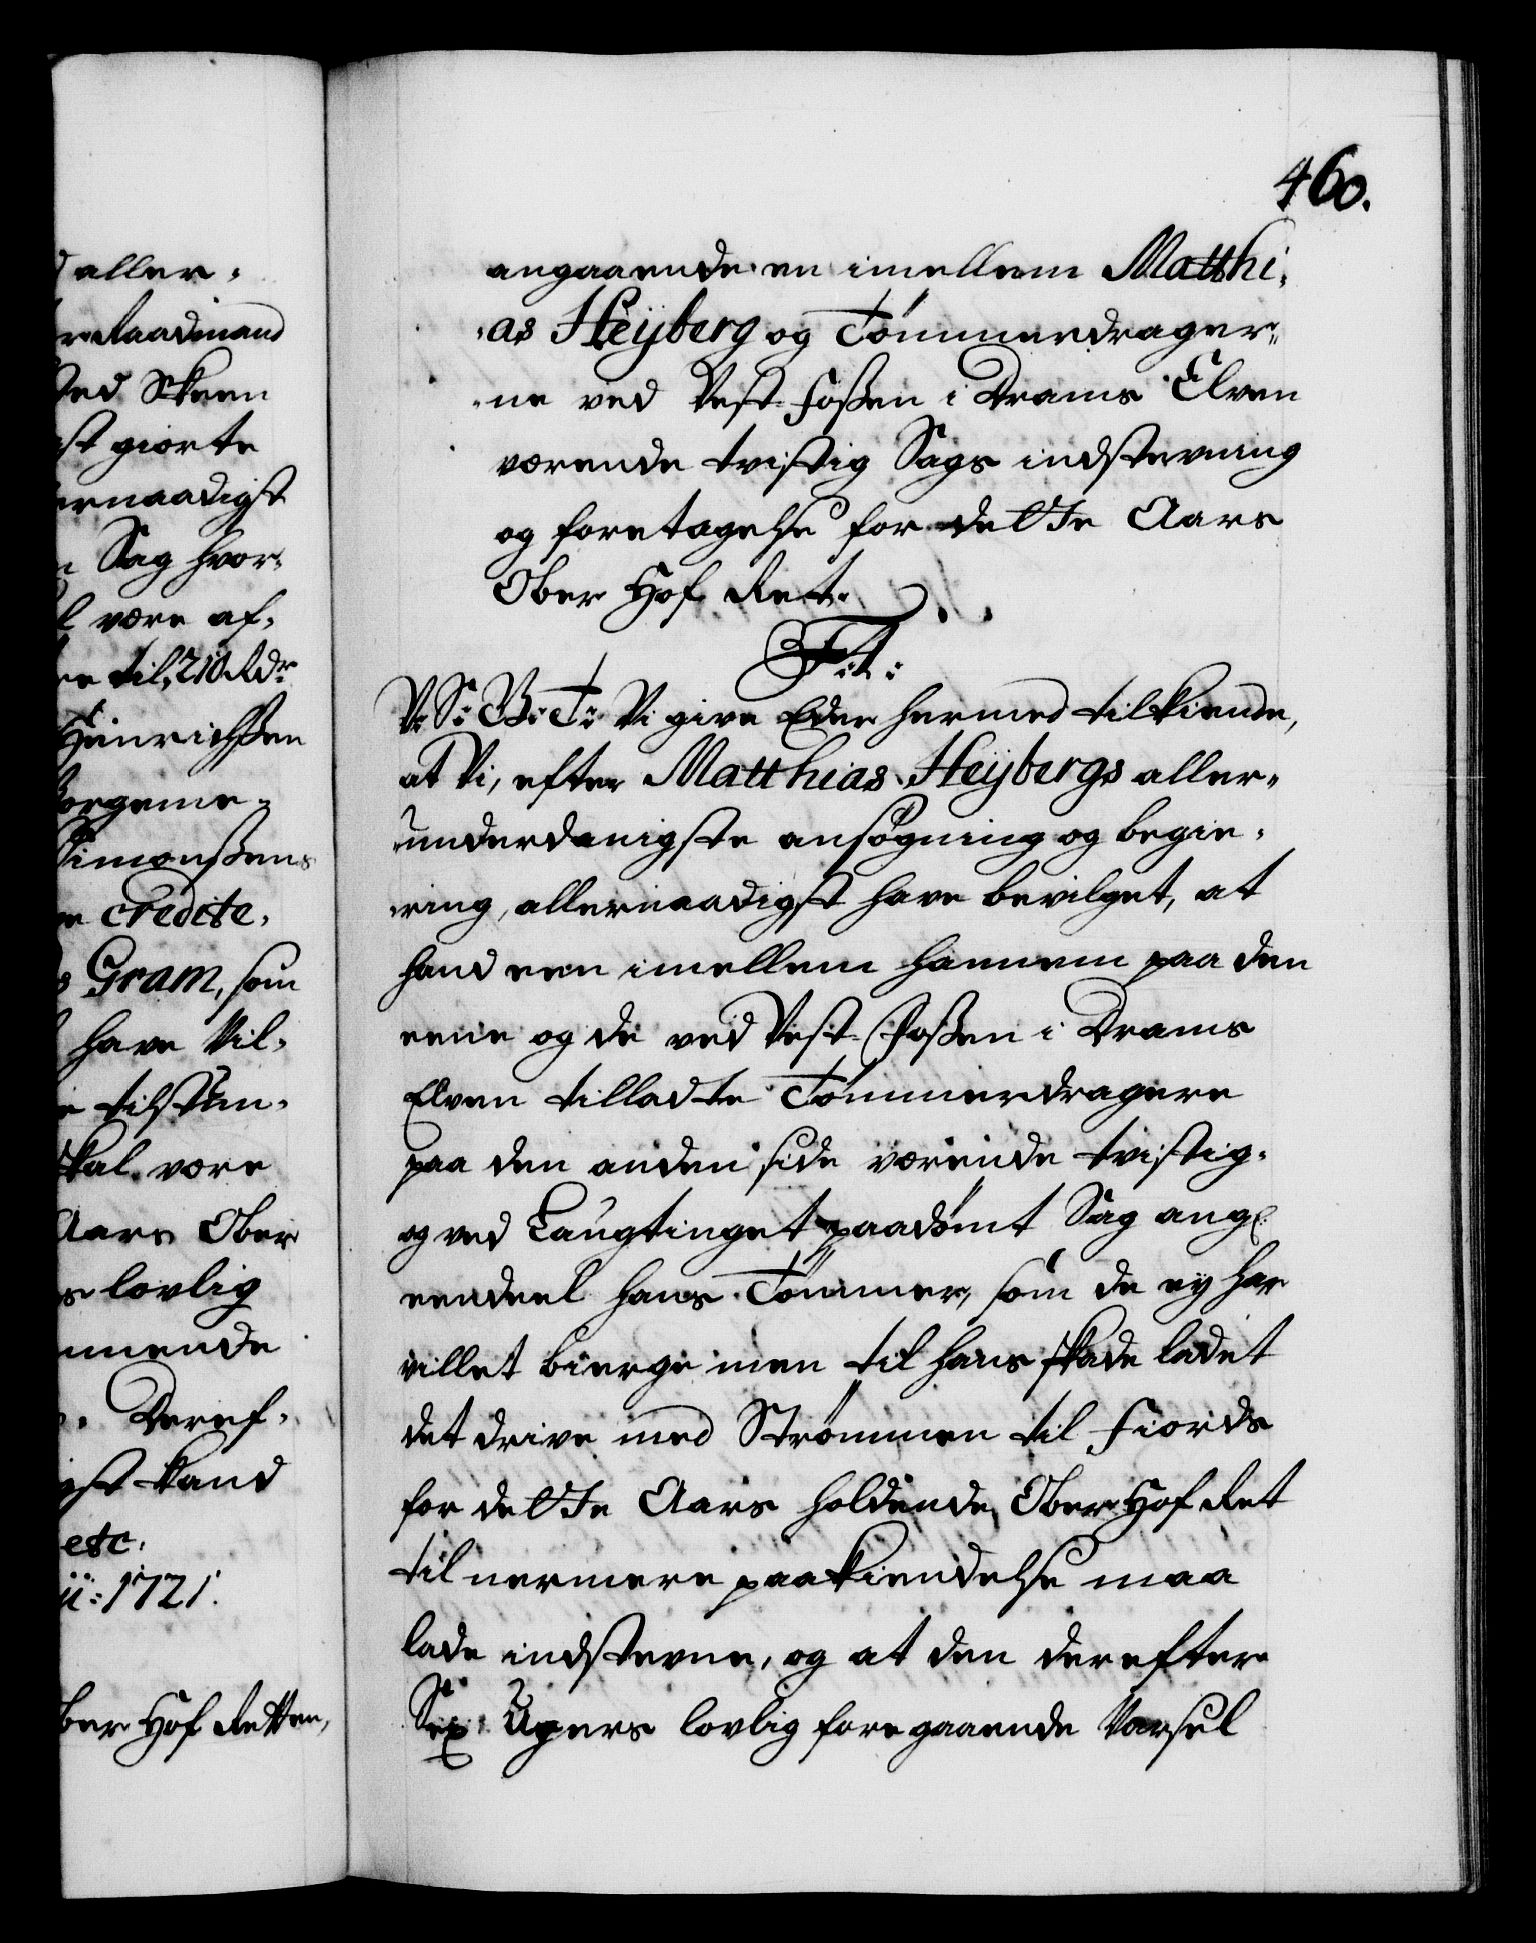 aller-
Raadmand
ved Skeen
giorte
allernaadigst
Sag hvor-
være af-
til, 210 Rdr
Heinrichssen
Borgeme-
Simonssens
credite-
Gram, som
have Vil-
tilstun-
skal være
Aars Ober
lovlig
Deref-
kand
etc.
1721.
Ober Hof Retten,
460.
angaaende en imellem Matthi-
-as Heijberg og Tømmerdrager-
-ne ved Vest-Fossen i Drams Elven
værende tvistig Sags indstevning
og foretagelse for dette Aars
Ober Hof Ret.
F: 4:
V: S: B: T: Vi give Eder hermed tilkiende,
at Vi, efter Matthias Heijbergs aller-
underdanigste ansøgning og begie-
-ring, allernaadigst have bevilget, at
hand een imellem hannem paa den
eene og de ved Vest-Fossen i Drams
Elven tilladte Tømmerdragere
paa den anden side værende tvistig-
og ved Laugtinget paadømt Sag ang:
eendeel hans Tømmer, som de ey har
villet bierge men til hans skade ladet
det drive med Strømmen til Fiords
for dette Aars holdende Ober-Hof Ret
til nermere paakiendelse maa
lade indstevne, og at den derefter
Sex Ugers lovlig foregaaende Varsel